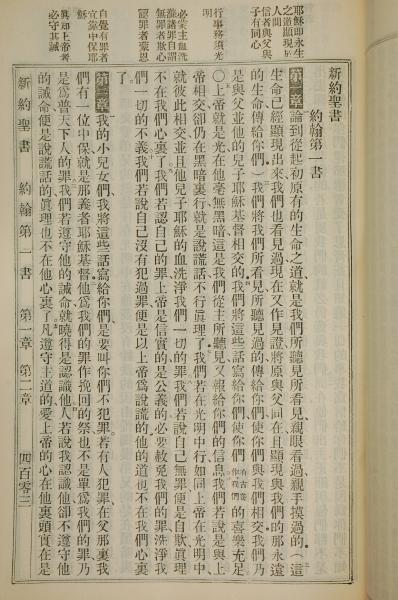 耶穌即永生
之道顯現於
人間
信者與父與
子有同心
行事務須光
明
必藉主血洗
滌諸罪自謂
無罪者欺心
認罪者蒙恩
自覺有罪者
宜賴中保耶
穌
眞知上帝者
必守其誡
新約聖書
約翰第一書
第一章 論到從起初原有的生命之道、就是我們所聽見所看見、親眼看過、親手摸過的、(這
生命已經顯現出來、我們也看見過、現在又作見證、將原與父同在、且顯現與我們的那永遠
的生命傳給你們)我們將我們所看見所聽見過的傳給你們、使你們與我們相交、我們乃
是與父並他的兒子耶穌基督相交的、我們將這些話寫給你們、使你們有古卷作我們的喜樂充足
〇上帝就是光、在他毫無黑暗、這是我們從主所聽見、又報給你們的信息、我們若說是與上
帝相交、卻仍在黑暗裏行、就是說謊話、不行眞理了、我們若在光明中行、如同上帝在光明中、
就彼此相交、並且他兒子耶穌的血洗淨我們一切的罪、我們若說自己無罪、便是自欺、眞理
不在我們心裏了、我們若認自己的罪、上帝是信實的、是公義的、必要赦免我們的罪、洗淨我
們一切的不義、我們若說自己沒有犯過罪、便是以上帝爲說謊的、他的道也不在我們心裏
了。
第二章 我的小兒女們、我將這些話寫給你們、是要叫你們不犯罪、若有人犯罪、在父那裏我
們有一位中保、就是那義者耶穌基督、他爲我們的罪作挽回的祭、也不是單爲我們的罪、乃
是爲普天下人的罪、我們若遵守他的誡命、就曉得是認識他、人若說我認識他、卻不遵守他
的誡命、便是說謊話的、眞理也不在他心裏、凡遵守主道的、愛上帝的心在他裏頭實在是
新約聖書 約翰第一書 第一章 第二章 四百零三